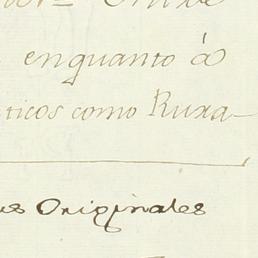 enquanto á
ticos como Ruxa-
us Originales